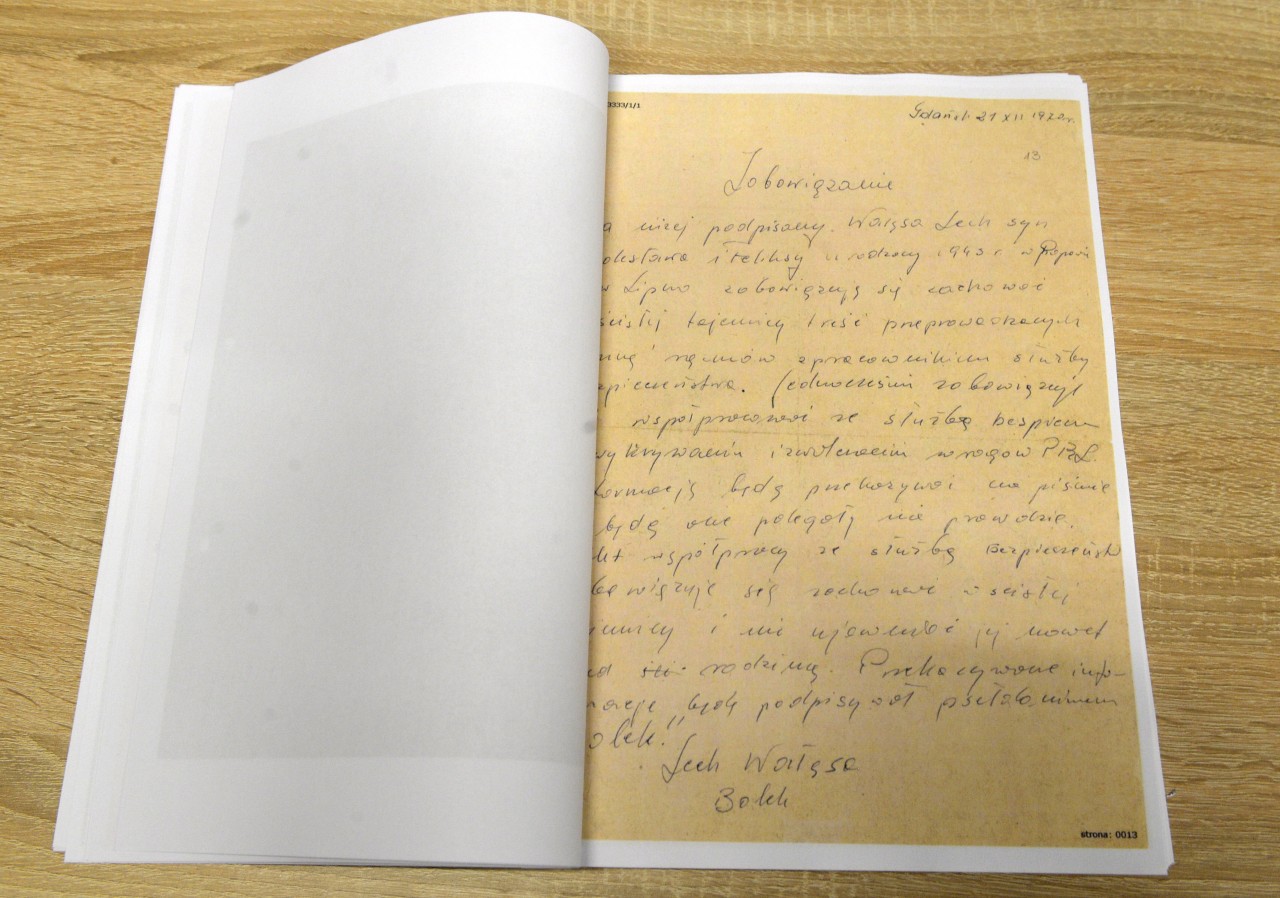 3333/1/1
Gdańsk 21 XII 1970r.
13
Zobowiązanie
niżej podpisany. Wałęsa Lech syn
i Feliksy urodzony 1943 r. w
Lipno zobowiązuję się zachować
tajemnicy treść przeprowadzonych
z pracownikiem służby
jednocześnie zobowiązuję
współpracować ze służbą bezpiecze
i zwalczaniu wrogów PRL.
będę przekazywał na piśmie
będą one polegały na prawdzie.
współpracy ze służbą Bezpieczeńst
się zachować w ścisłej
i nie ujawniać jej nawet
rodziną. Przekazywane info-
będę podpisywał pseudonimem
olek."
Lech Wałęsa
Bolek
strona: 0013